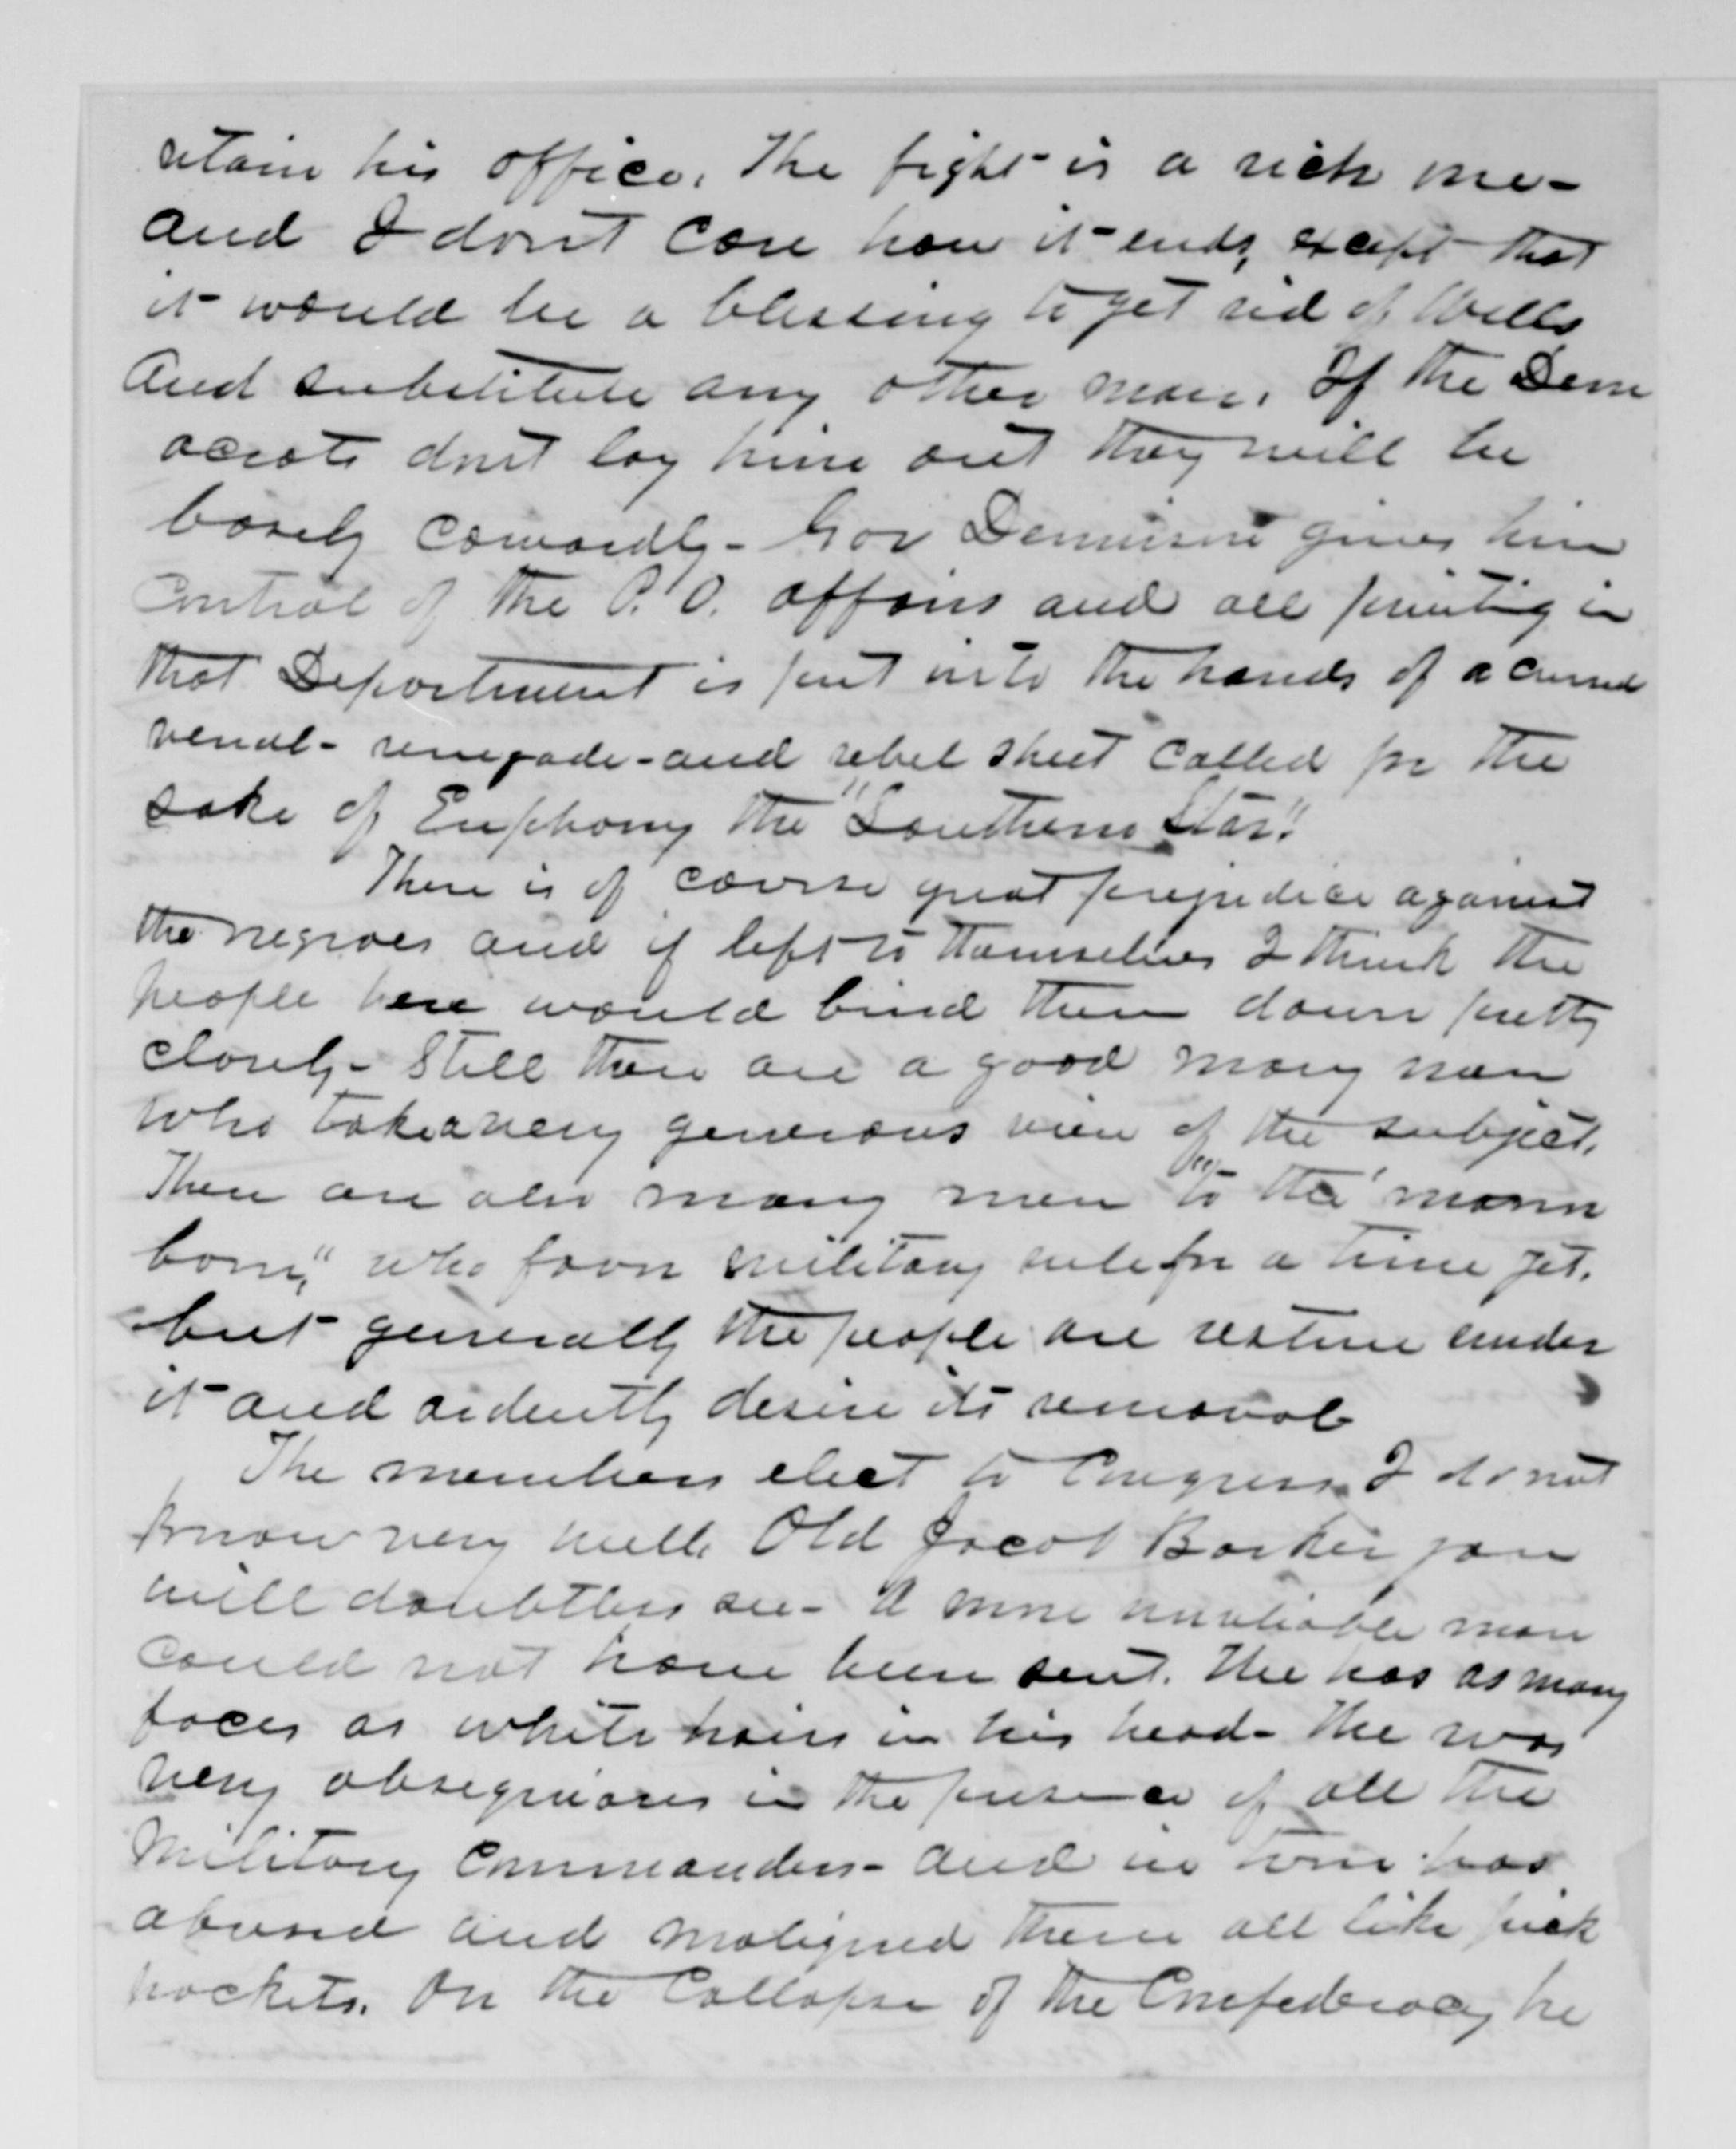 retain his office. The fight is a rich one-
and I don't care how it ends, except that
it would be a blessing to get rid of Wells
and substitute any other man. If the Dem
ocrats don't lay him out they will be
basely cowardly - Gov Dennison gives him
control of the P.O. affairs and all printing in
that Department is put into the hands of a cursed
venal - renegade - and rebel sheet called for the
sake of Euphony the "Southern Star."
There is of course great prejudice against
the negroes and if left to themselves I think the
people here would bind them down pretty
closely - Still there are a good many men
who take a very generous view of the subject.
There are also many men "to the manor
born," who favor military rule for a time yet.
but generally the people are restive under
it and ardently desire its removal
The members elect to Congress I do not
know very well. Old Jacob Barker you
will doubtless see - A more unreliable man
could not have been sent. He has as many
faces as white hairs in his head - He was
very obsequious in the presence of all the
Military Commanders - and in turn has
abused and maligned them all like pick
pockets. On the Collapse of the Confederacy he